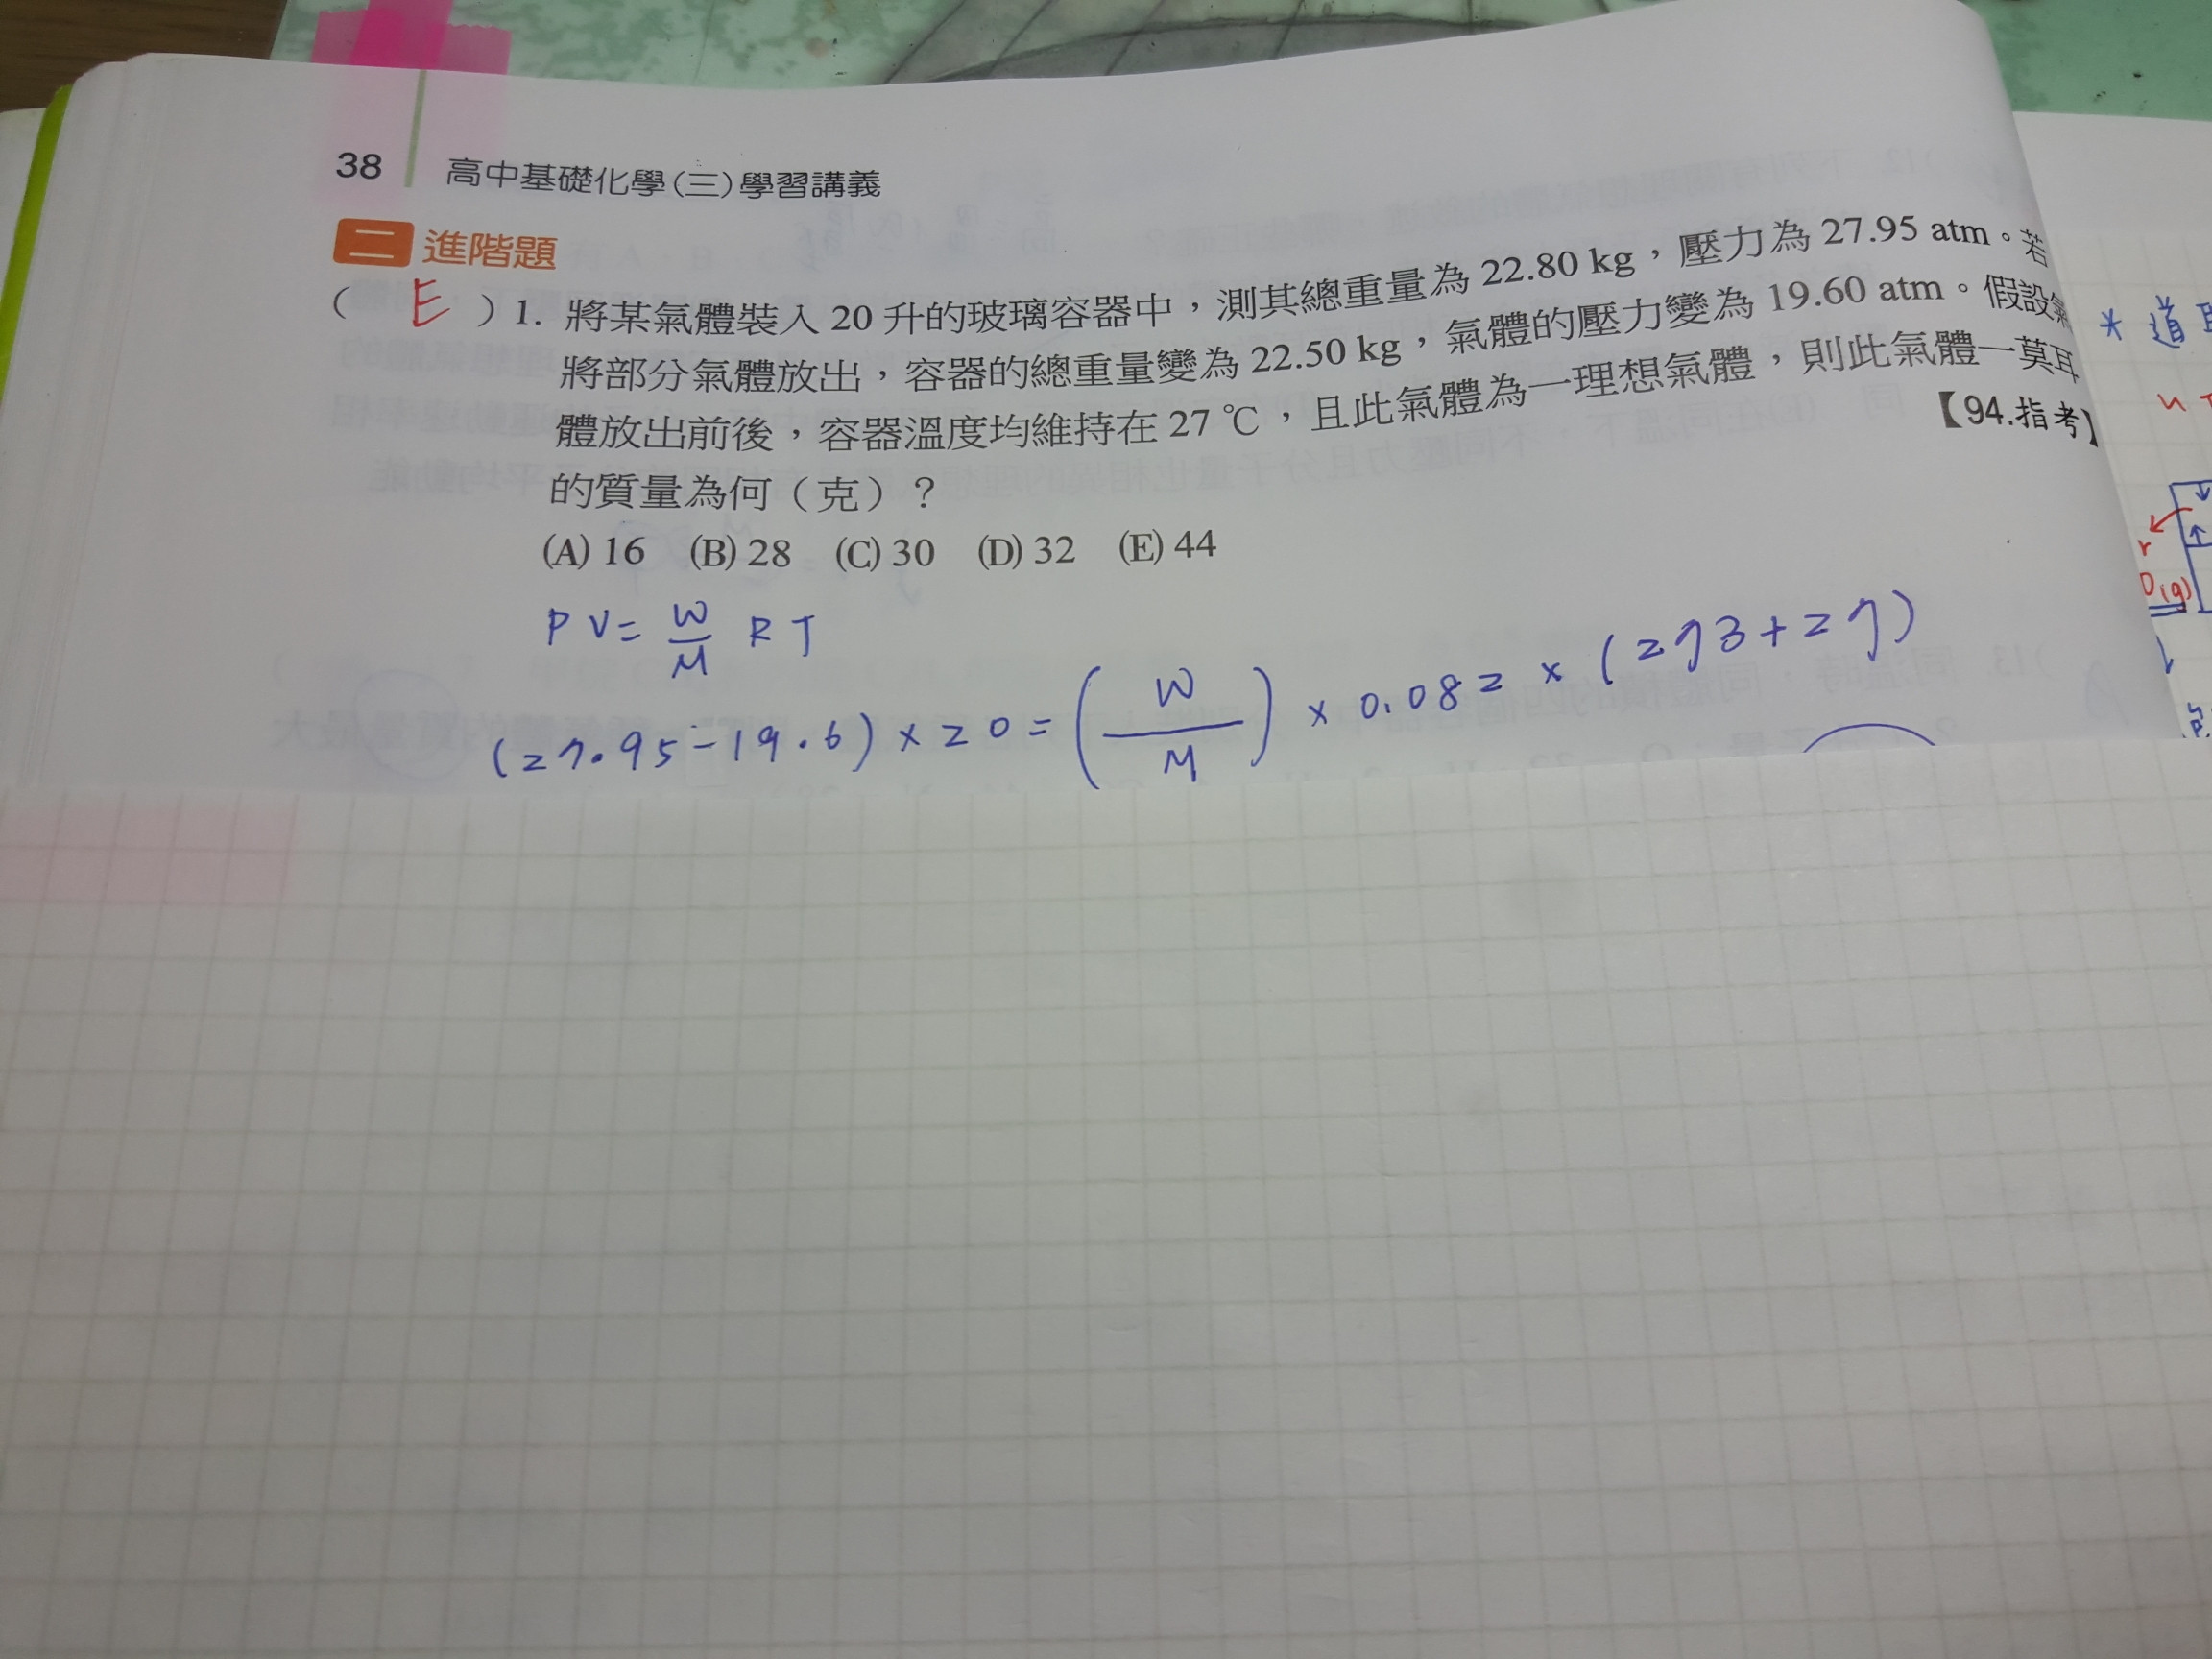 38 高中基礎化學(三)學習講義
二 進階題
( E ) 1. 將某氣體裝入 20 升的玻璃容器中，測其總重量為 22.80 kg，壓力為 27.95 atm。若
將部分氣體放出，容器的總重量變為 22.50 kg，氣體的壓力變為 19.60 atm。假設氣
體放出前後，容器溫度均維持在 27 ℃，且此氣體為一理想氣體，則此氣體一莫耳
的質量為何（克）？
【94.指考】
(A) 16 (B) 28 (C) 30 (D) 32 (E) 44
PV = W/M RT
(27.95 - 19.6) × 20 = (W/M) × 0.082 × (273 + 27)
* 道
(g)